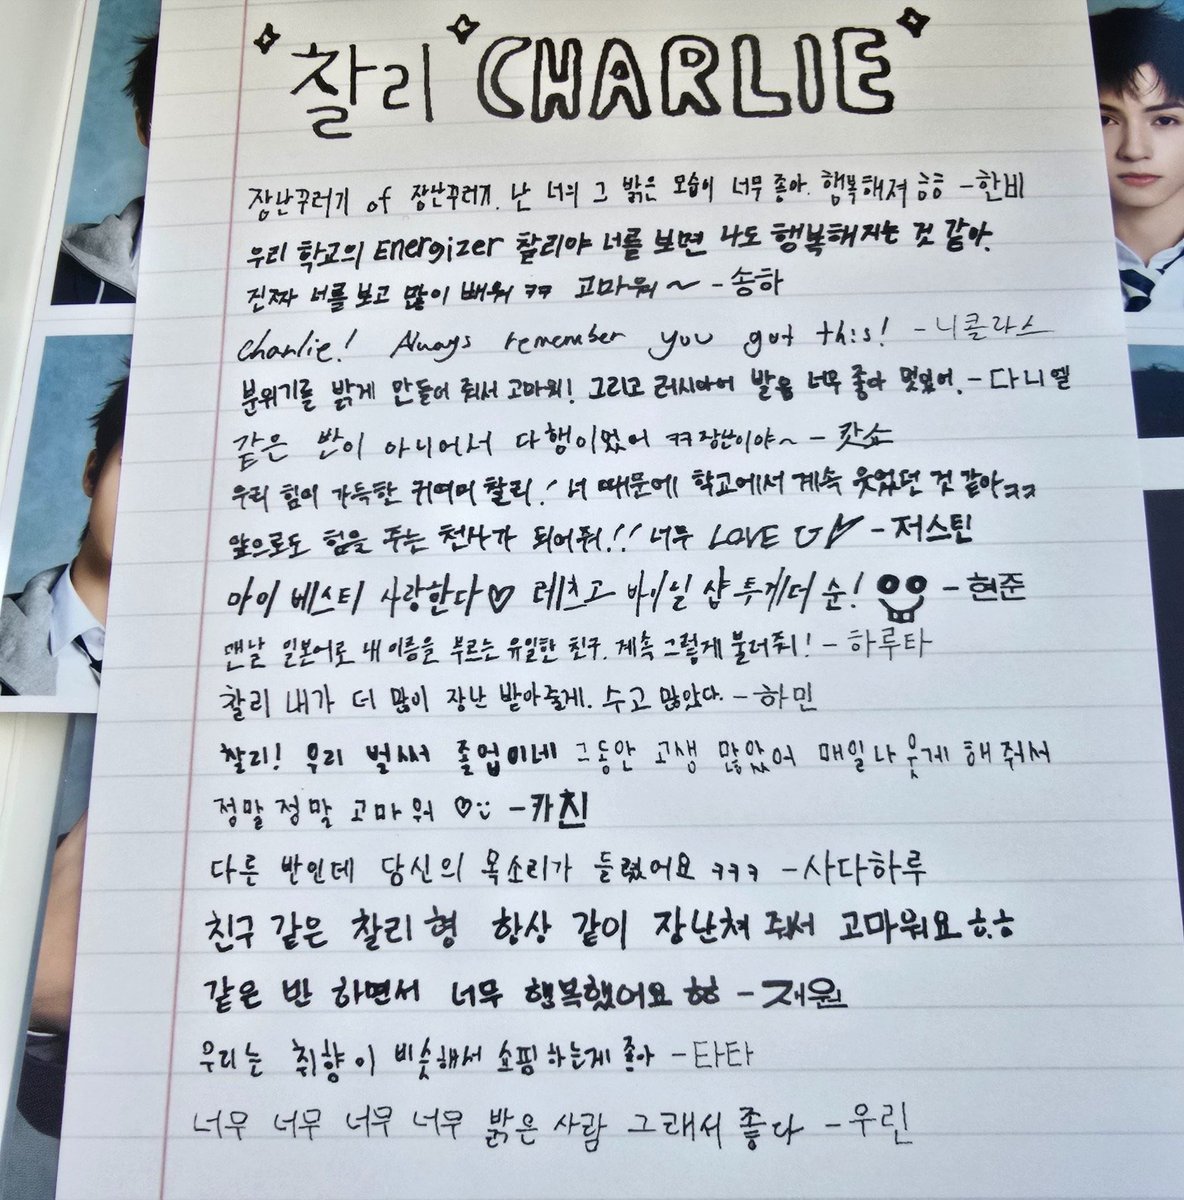 찰리 CHARLIE
장난꾸러기 of 장난꾸러기. 난 너의 그 밝은 모습이 너무 좋아. 행복해져 ㅎㅎ -한비
우리 학교의 Energizer 찰리야 너를 보면 나도 행복해지는 것 같아.
진짜 너를 보고 많이 배워 ㅋㅋ 고마워~ -송하
Charlie! Always remember you got this! -니콜라스
분위기를 밝게 만들어 줘서 고마워! 그리고 러시아어 발음 너무 좋다 멋있어. -다니엘
같은 반이 아니어서 다행이었어 ㅋㅋ장난이야~ -캇쇼
우리 힘이 가득한 귀여미 찰리! 너 때문에 학교에서 계속 웃었던 것 같아ㅋㅋ
앞으로도 힘을 주는 천사가 되어줘!! 너무 LOVE U -저스틴
마이 베스티 사랑한다♡ 레츠고 바이닐 샵 투게더 순! -현준
맨날 일본어로 내 이름을 부르는 유일한 친구. 계속 그렇게 불러줘! -하루타
찰리 내가 더 많이 장난 받아줄게. 수고 많았다. -하민
찰리! 우리 벌써 졸업이네 그동안 고생 많았어 매일 나 웃게 해 줘서
정말 정말 고마워 ♡:) -카친
다른 반인데 당신의 목소리가 들렸어요 ㅋㅋㅋ -사다하루
친구 같은 찰리 형 항상 같이 장난쳐 줘서 고마워요 ㅎ.ㅎ
같은 반 하면서 너무 행복했어요 ㅎㅎ -재원
우리는 취향이 비슷해서 쇼핑하는게 좋아 -타타
너무 너무 너무 너무 밝은 사람 그래서 좋다 -우린